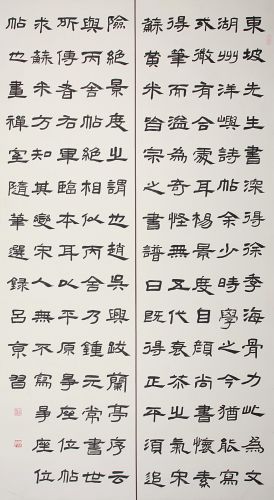 東坡先生書深得徐季海骨力此為文
湖州洋嶼詩帖余少時學之猶能寫
或微有合處耳楊景度書自顏尚書懷素
得筆而溢為奇怪無五代衰苶之氣宋
蘇黃米皆宗之書譜曰既得平正須追
險絕景度之謂也趙吳興跋蘭亭序云
與丙舍帖絕相似丙舍乃鍾元常書世
所傳者右軍臨本耳平原爭座位帖
求蘇米方知其變宋人無不寫爭座位
帖也畫禪室隨筆選錄呂京習